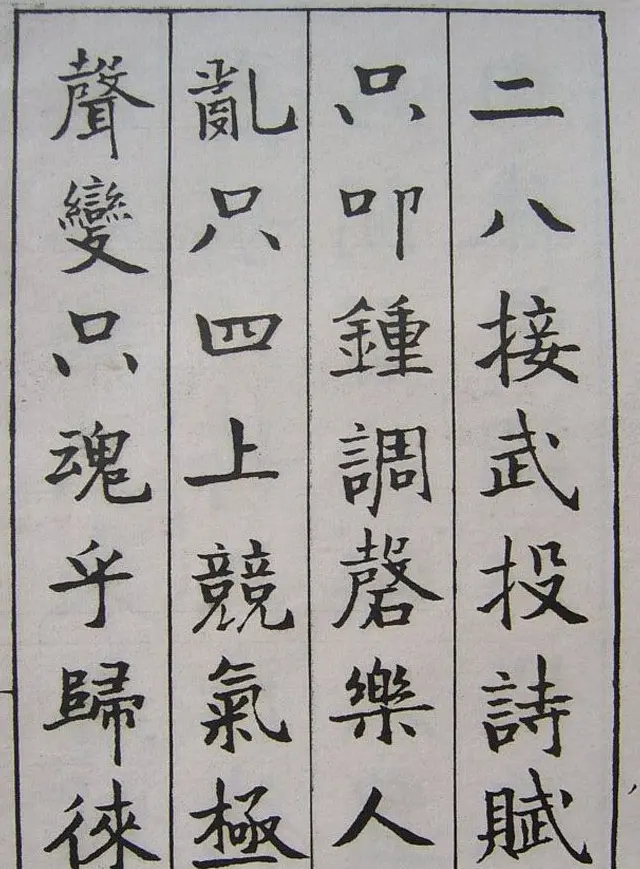 二八接武投詩賦
只叩鍾調磬樂人
亂只四上競氣極
聲變只魂乎歸徠